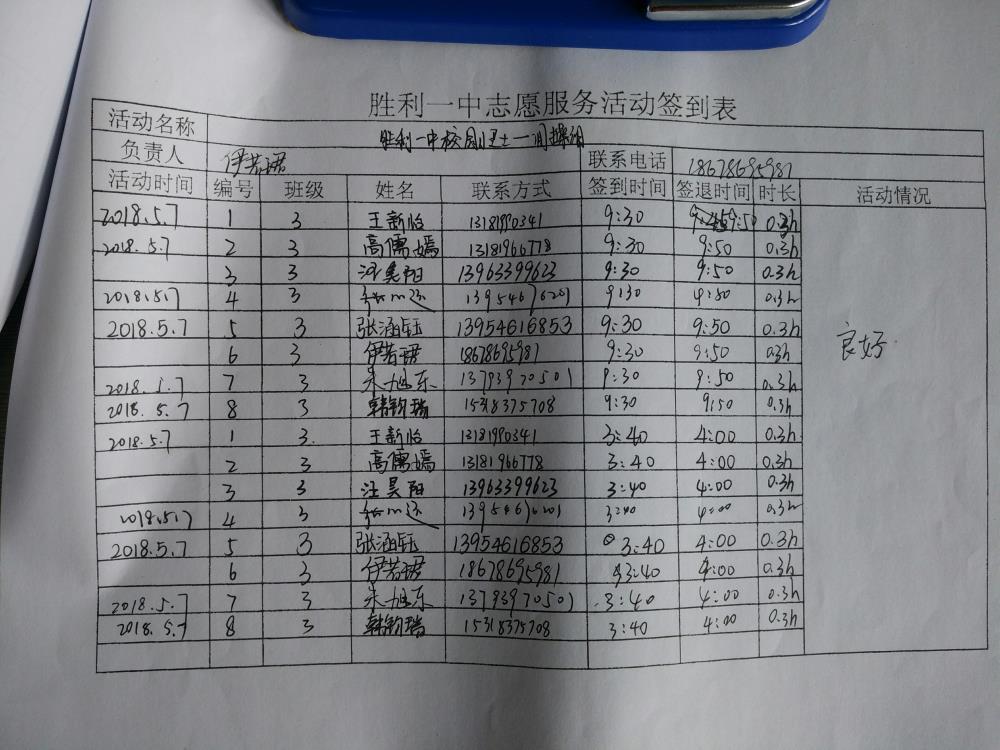 胜利一中志愿服务活动签到表
活动名称 胜利一中校园卫士一周
负责人 伊若珺 联系电话 18678695981
活动时间 编号 班级 姓名 联系方式 签到时间 签退时间 时长 活动情况
2018.5.7 1 3 王新怡 13181990341 9:30 9:50 0.3h
2018.5.7 2 3 高儒嫣 13181966778 9:30 9:50 0.3h
3 3 汪昊阳 13963399623 9:30 9:50 0.3h
2018.5.7 4 3 9:30 9:50 0.3h
2018.5.7 5 3 张涵钰 13954616853 9:30 9:50 0.3h
良好
6 3 伊若珺 18678695981 9:30 9:50 0.3h
7 3 朱旭东 13793970501 9:30 9:50 0.3h
2018.5.7 8 3 韩钧瑞 15318375708 9:30 9:50 0.3h
2018.5.7 1 3. 王新怡 13181990341 3:40 4:00 0.3h
2 3 高儒嫣 13181966778 3:40 4:00 0.3h
3 3 汪昊阳 13963399623 3:40 4:00 0.3h
2018.5.7 4 3 3:40 4:00 0.3h
2018.5.7 5 3 张涵钰 13954616853 3:40 4:00 0.3h
6 3 伊若珺 18678695981 3:40 4:00 0.3h
2018.5.7 7 3 朱旭东 13793970501 3:40 4:00 0.3h
2018.5.7 8 3 韩钧瑞 15318375708 3:40 4:00 0.3h